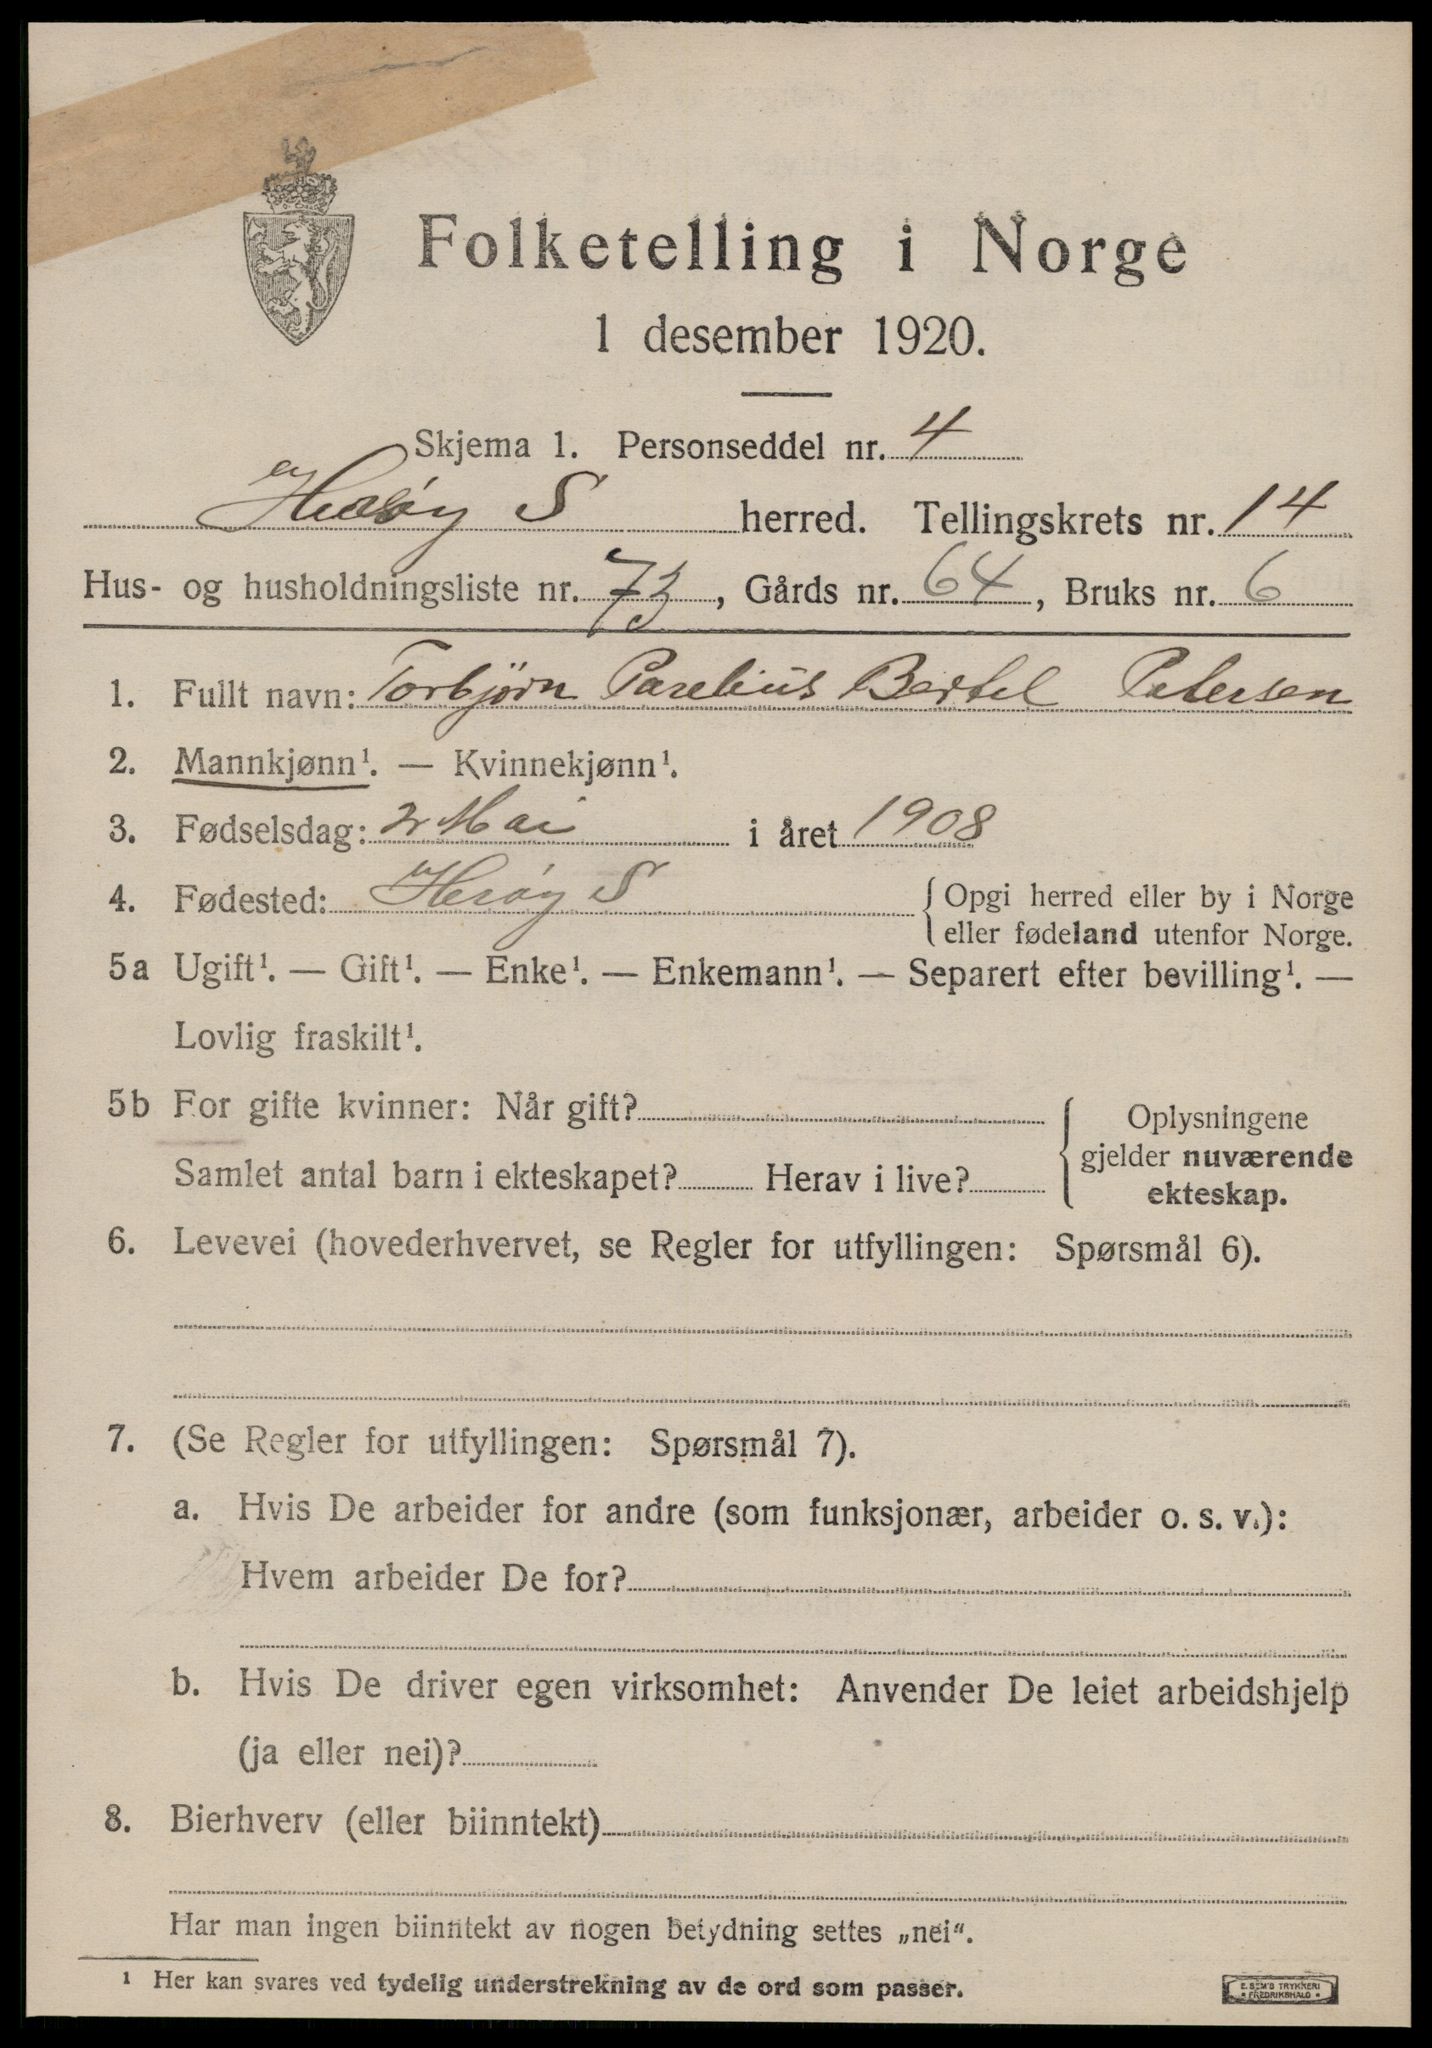 Folketelling i Norge
1 desember 1920.
Skjema 1. Personseddel nr. 4
Herøy S herred. Tellingskrets nr. 14
Hus- og husholdningsliste nr. 73, Gårds nr. 64, Bruks nr. 6
1. Fullt navn: Torbjørn Parelius Bertel Petersen
2. Mannkjønn¹. — Kvinnekjønn¹.
3. Fødselsdag: 2 Mai i året 1908
4. Fødested: Herøy S { Opgi herred eller by i Norge
eller fødeland utenfor Norge.
5a Ugift¹. — Gift¹. — Enke¹. — Enkemann¹. — Separert efter bevilling¹. —
Lovlig fraskilt¹.
5b For gifte kvinner: Når gift? { Oplysningene
gjelder nuværende
Samlet antal barn i ekteskapet? Herav i live? ekteskap.
6. Levevei (hovederhvervet, se Regler for utfyllingen: Spørsmål 6).
7. (Se Regler for utfyllingen: Spørsmål 7).
a. Hvis De arbeider for andre (som funksjonær, arbeider o. s. v.):
Hvem arbeider De for?
b. Hvis De driver egen virksomhet: Anvender De leiet arbeidshjelp
(ja eller nei)?
8. Bierhverv (eller biinntekt)
Har man ingen biinntekt av nogen betydning settes „nei“.
¹ Her kan svares ved tydelig understrekning av de ord som passer.
E. SEM'S TRYKKERI
FREDRIKSHALD